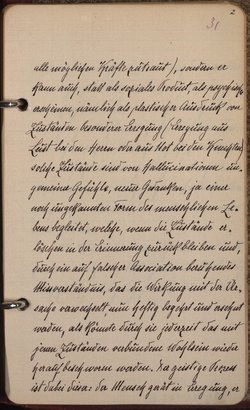 2
31
alle möglichen Kräfte zutraut), sondern er
kann auch, statt als soziales Produkt, als psychisches
erscheinen, nämlich als plastischer Ausdruck von
Zuständen besonderer Erregung (Erregung aus
Lust bei den Herren oder aus Not bei den Knechten),
solche Zustände sind von Hallucinationen
Gefühls, neuer Gedanken, ja einer
noch ungekannten Form des menschlichen Le-
bens begleitet, welche, wenn die Zustände er-
löschen in der Erinnerung zurück bleiben und,
durch ein auf falscher Association beruhendes
Missverständnis, das die Wirkung mit der Ur-
sache verwechselt nun heftig begehrt und ersehnt
werden, als könnte durch sie jederzeit das mit
jenen Zuständen verbundene Wohlsein wieder
heraufbeschworen werden. Der geistige Prozess
ist dabei dieser: der Mensch gerät in Erregung, er